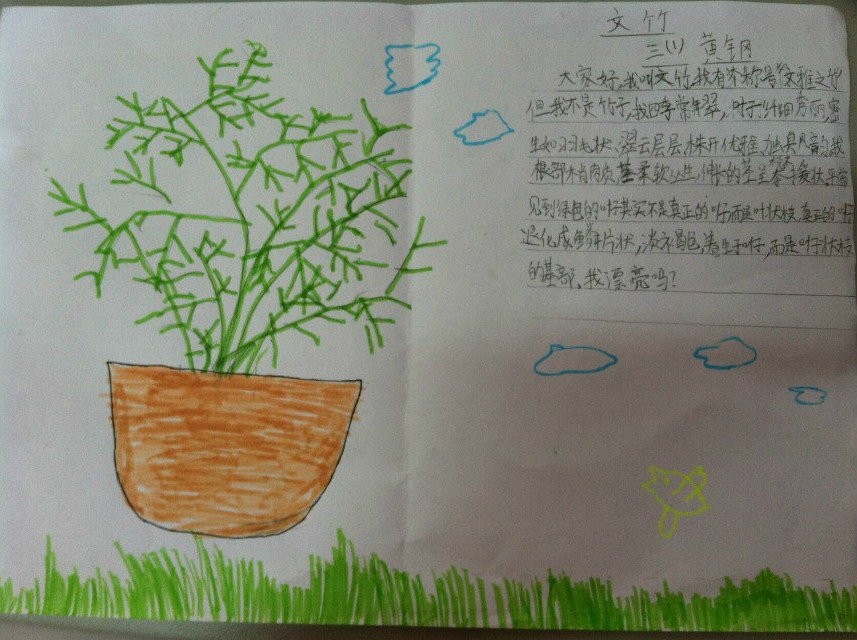 文竹
三(1) 黄钢
大家好，我叫文竹，我有个称号文雅之竹
但我不是竹子，我四季常年翠，叶子纤细秀丽密
生如羽毛状，翠云层层，株开优雅，独具风韵，我
根部木肉质，茎柔软丛生，伸长的茎呈攀援状，平常
见到绿色的叶其实不是真正的叶，而是叶状枝，真正的叶
退化成鳞片状，淡褐色，着生于叶，而是叶子状枝
的基部，我漂亮吗？